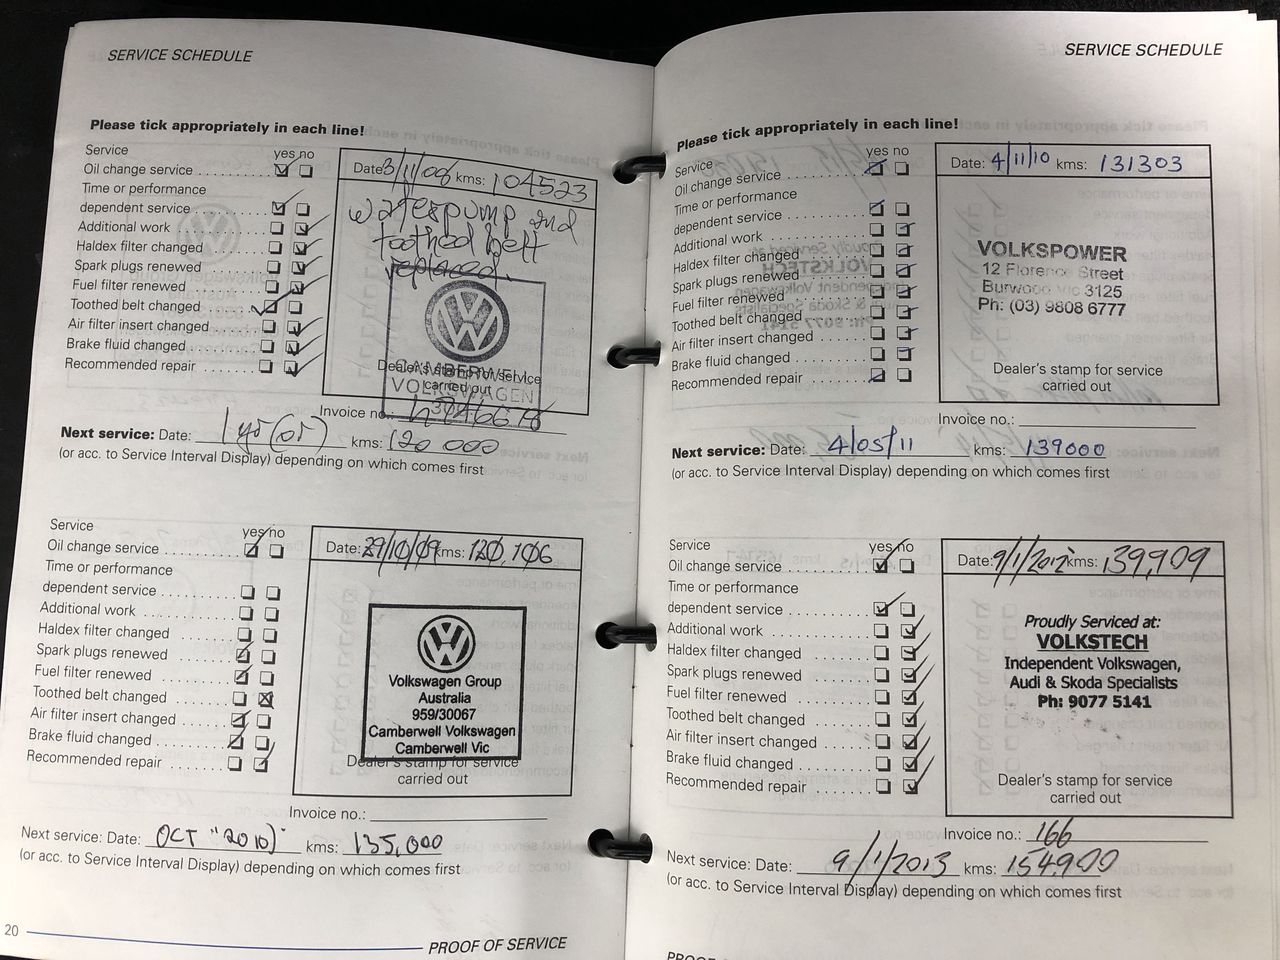 SERVICE SCHEDULE
Please tick appropriately in each line!
Service yes no
Oil change service
Time or performance
dependent service
Additional work
Haldex filter changed
Spark plugs renewed
Fuel filter renewed
Toothed belt changed
Air filter insert changed
Brake fluid changed
Recommended repair
Date: 3/11/08 kms: 104523
waterpump and
toothed belt
replaced.
CAMBERWELL
VOLKSWAGEN
Dealer's stamp for service
carried out
Invoice no.:
Next service: Date: 1 yr (or) kms: 120 000
(or acc. to Service Interval Display) depending on which comes first
Service yes no
Oil change service
Time or performance
dependent service
Additional work
Haldex filter changed
Spark plugs renewed
Fuel filter renewed
Toothed belt changed
Air filter insert changed
Brake fluid changed
Recommended repair
Date: 29/10/09 kms: 120,106
Volkswagen Group
Australia
959/30067
Camberwell Volkswagen
Camberwell Vic
Dealer's stamp for service
carried out
Invoice no.:
Next service: Date: OCT "2010" kms: 135,000
(or acc. to Service Interval Display) depending on which comes first
20
PROOF OF SERVICE
SERVICE SCHEDULE
Please tick appropriately in each line!
Service yes no
Oil change service
Time or performance
dependent service
Additional work
Haldex filter changed
Spark plugs renewed
Fuel filter renewed
Toothed belt changed
Air filter insert changed
Brake fluid changed
Recommended repair
Date: 4/11/10 kms: 131303
VOLKSPOWER
12 Florence Street
Burwood Vic 3125
Ph: (03) 9808 6777
Dealer's stamp for service
carried out
Invoice no.:
Next service: Date: 4/05/11 kms: 139000
(or acc. to Service Interval Display) depending on which comes first
Service yes no
Oil change service
Time or performance
dependent service
Additional work
Haldex filter changed
Spark plugs renewed
Fuel filter renewed
Toothed belt changed
Air filter insert changed
Brake fluid changed
Recommended repair
Date: 9/1/2012 kms: 139,909
Proudly Serviced at:
VOLKSTECH
Independent Volkswagen,
Audi & Skoda Specialists
Ph: 9077 5141
Dealer's stamp for service
carried out
Invoice no.: 166
Next service: Date: 9/1/2013 kms: 154900
(or acc. to Service Interval Display) depending on which comes first